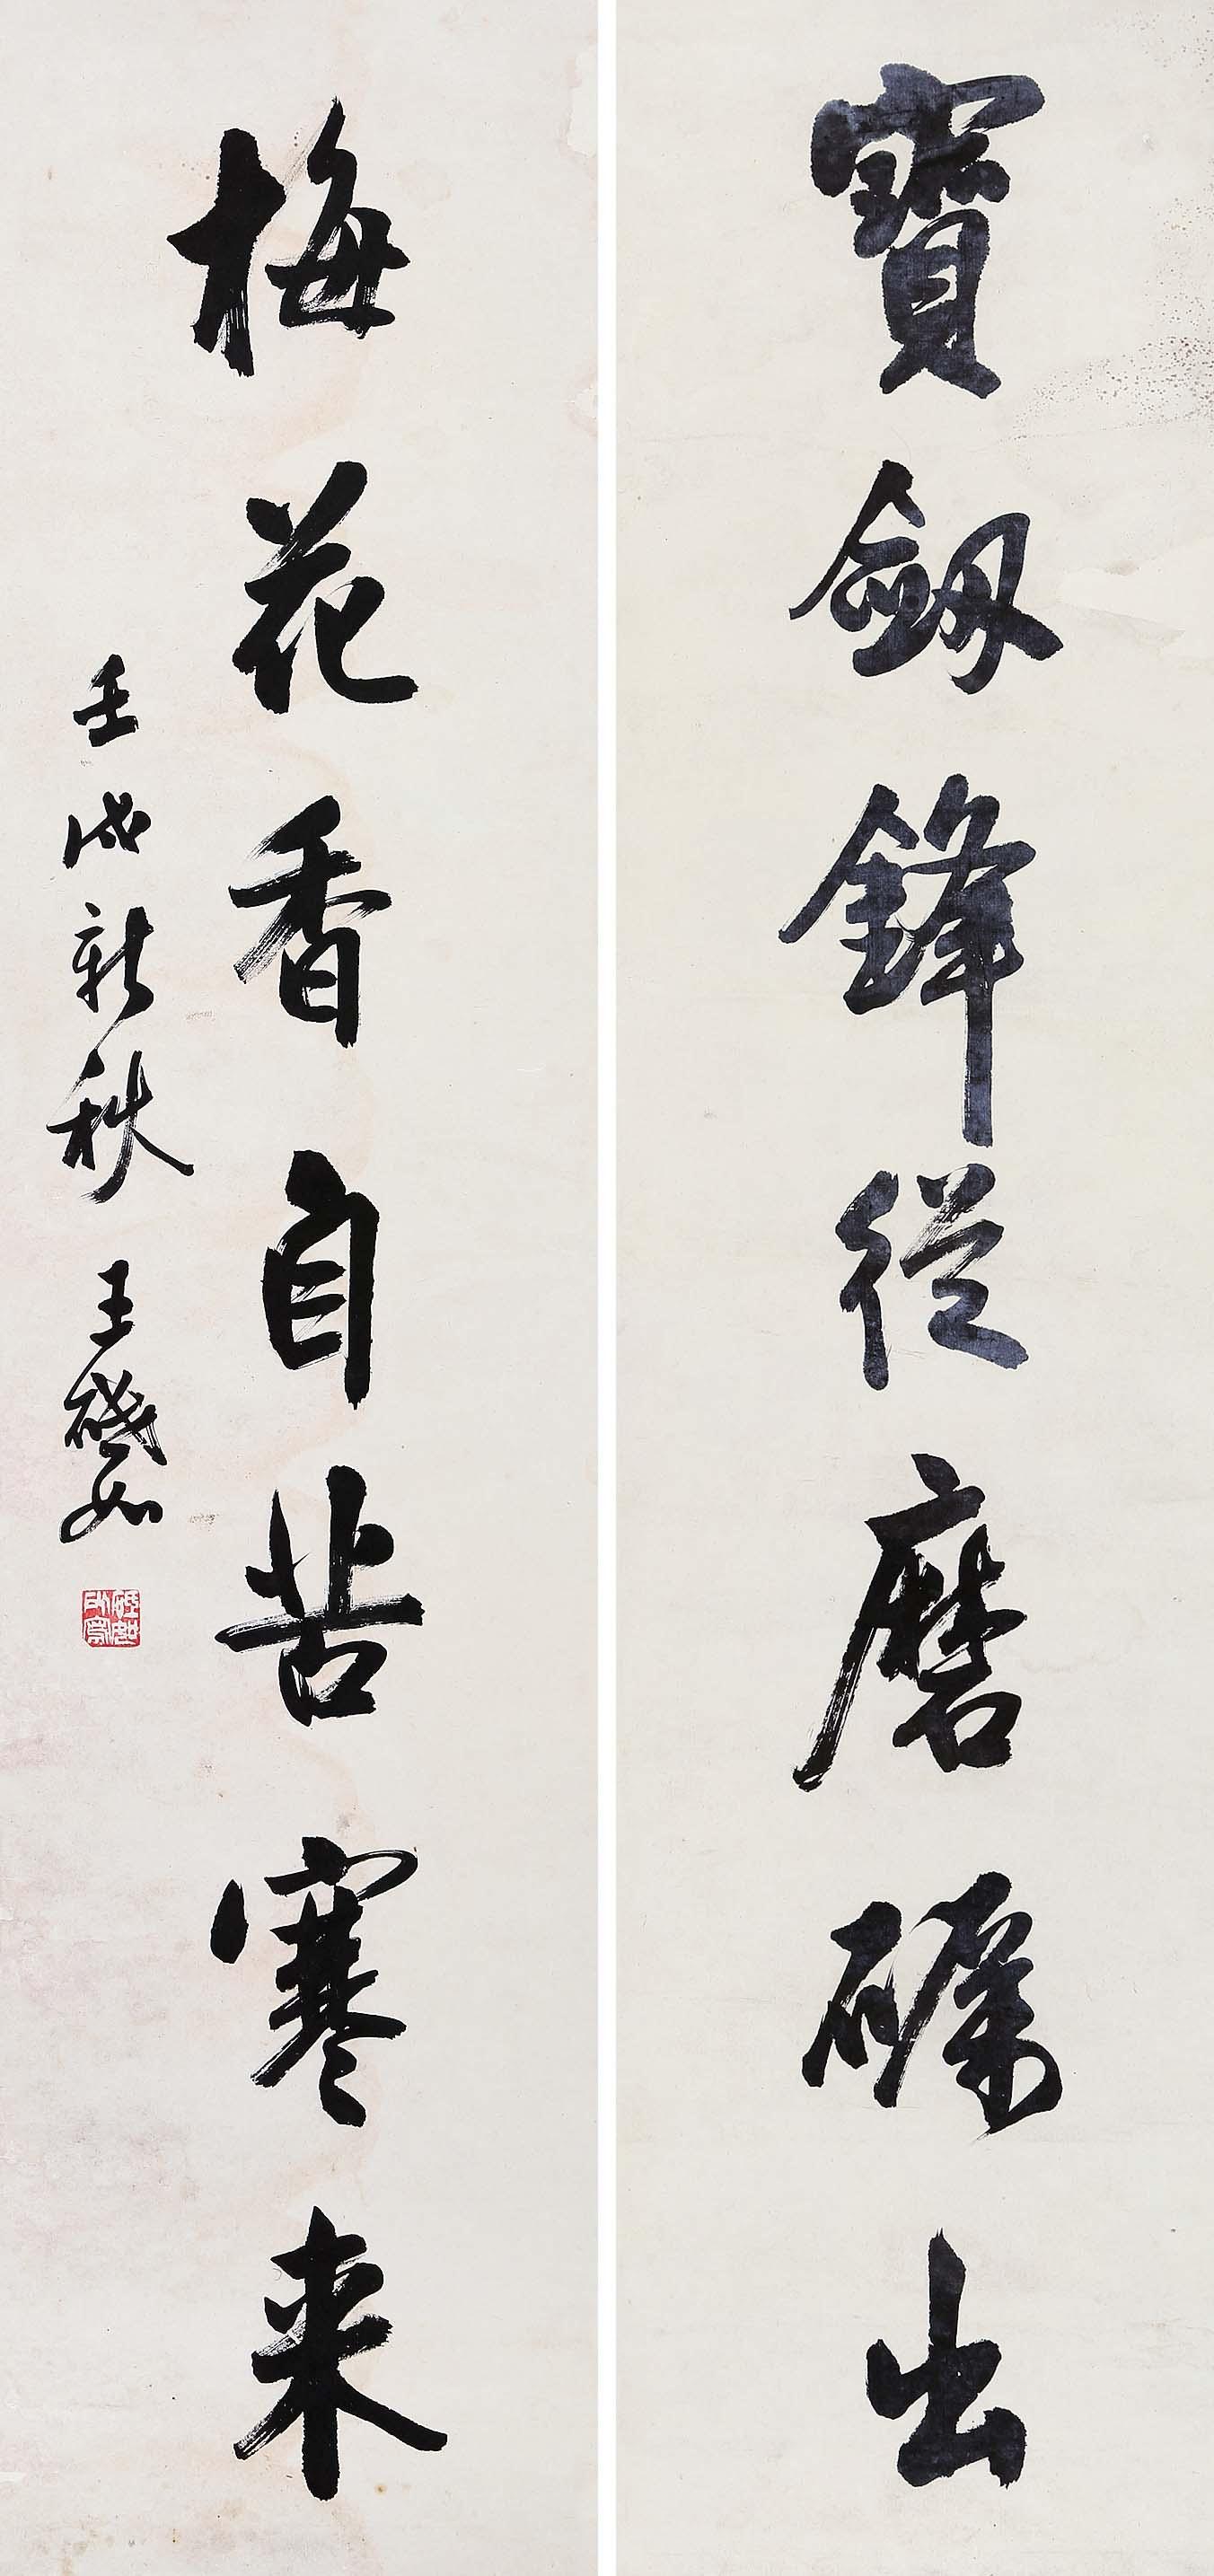 寶劔鋒從磨礪出
梅花香自苦寒来
壬戌新秋
王蘧如